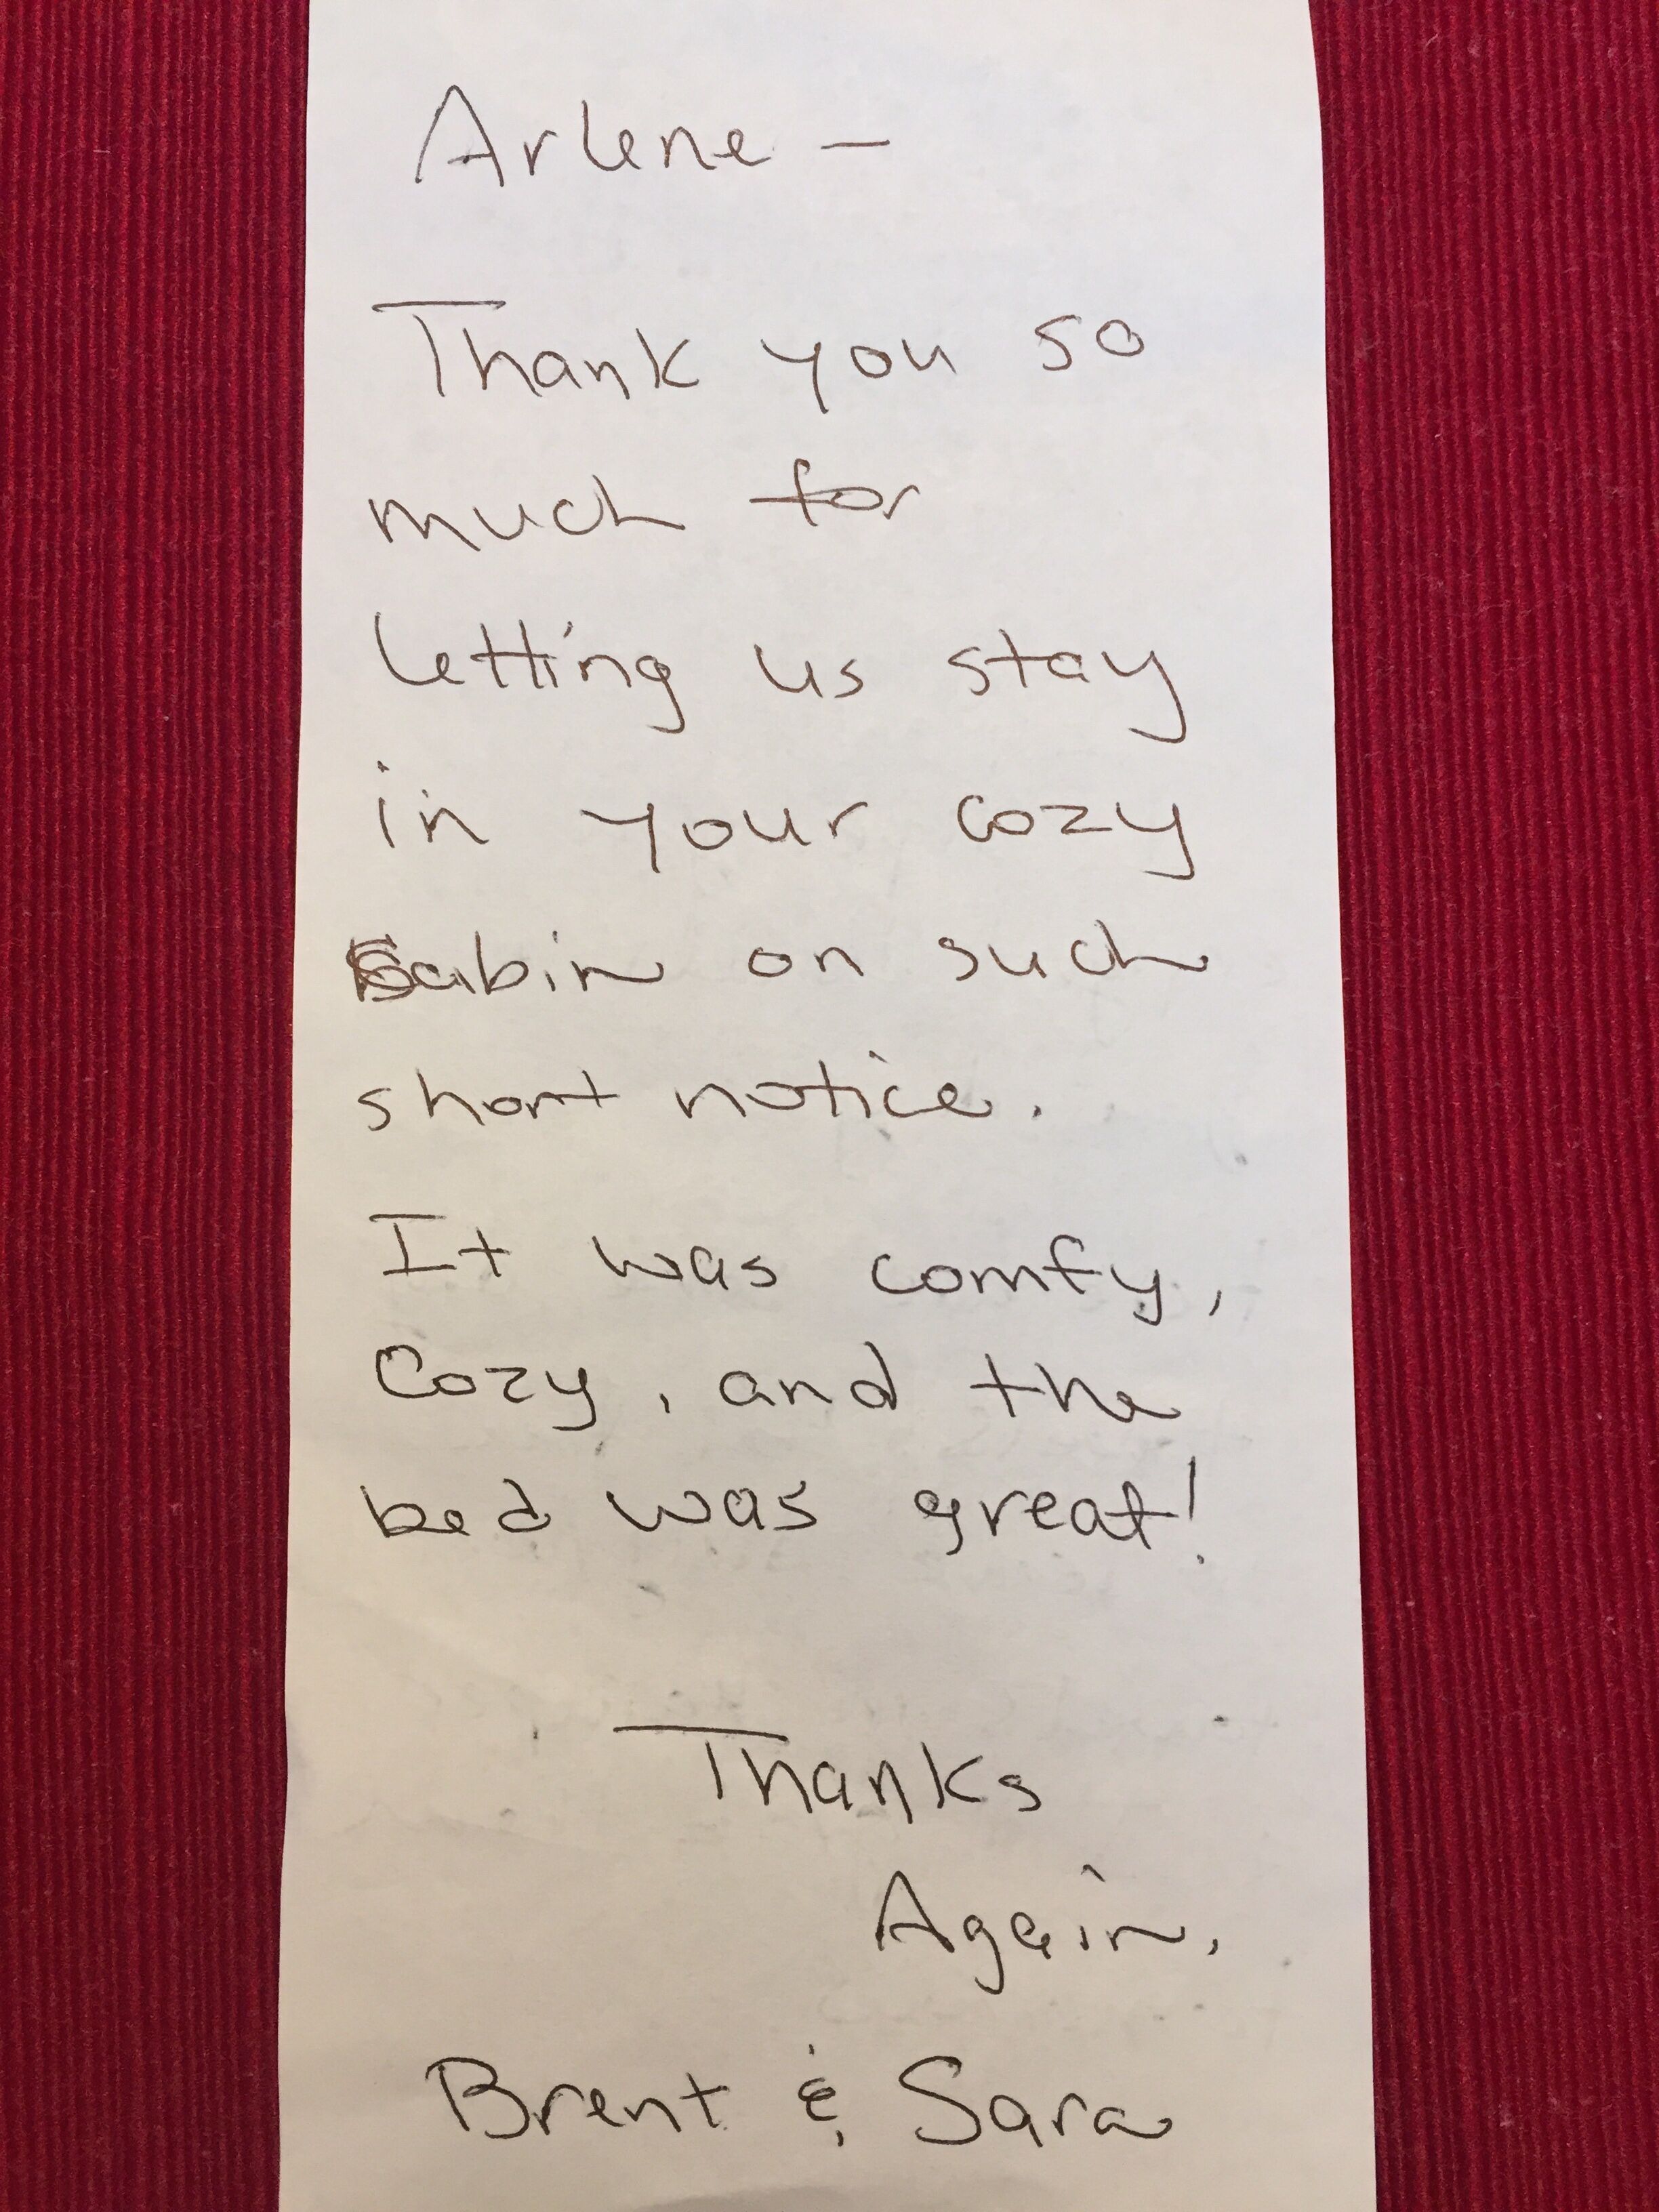 Arlene —
Thank you so
much for
letting us stay
in your cozy
cabin on such
short notice.
It was comfy,
Cozy, and the
bed was great!
Thanks
Again,
Brent & Sara